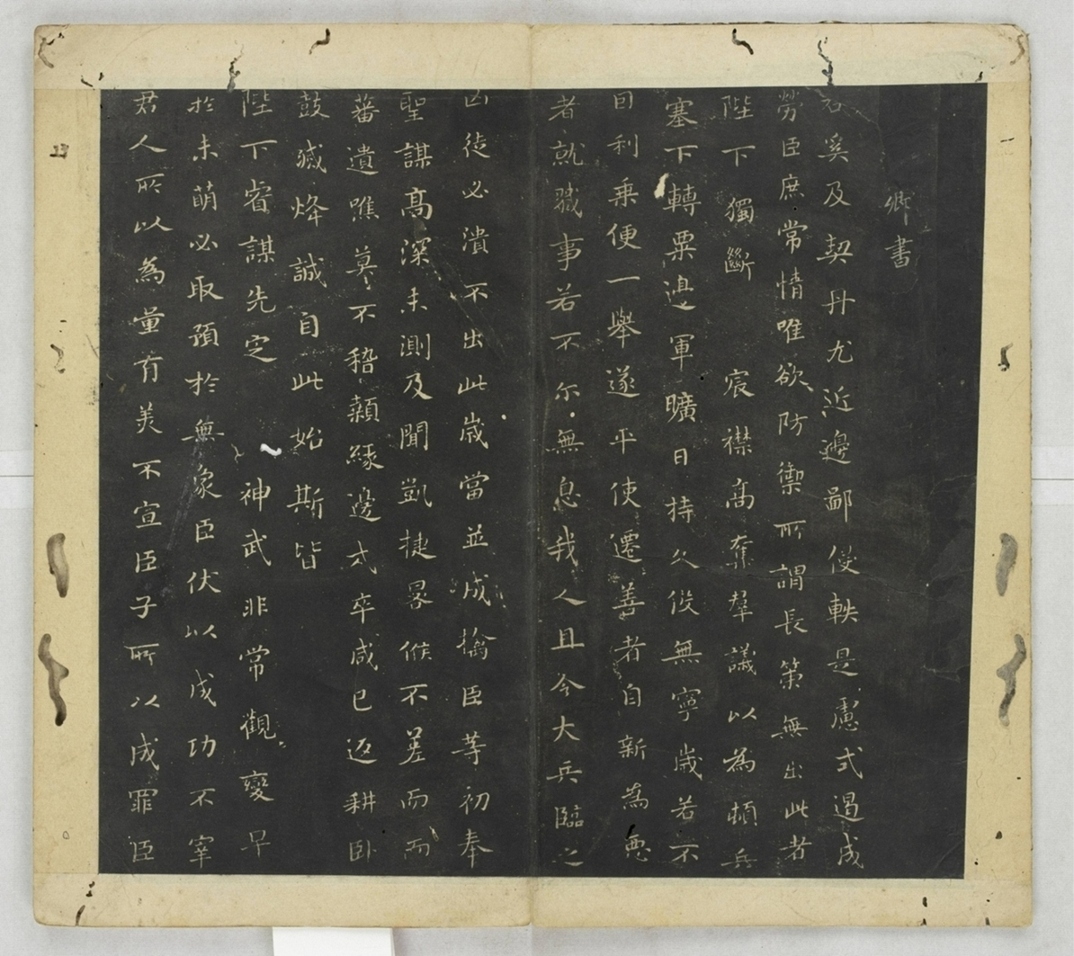 卿書
右奚及契丹尤近邊鄙侵軼是慮式遏成
勞臣庶常情唯欲防禦所謂長策無出此者
陛下獨斷宸襟高奪羣議以為頓兵
塞下轉粟邊軍曠日持久役無寧歲若不
因利乘便一舉遂平使遷善者自新為惡
者就職事若不尒無息我人且今大兵臨之
凶徒必潰不出此歲當並成擒臣等初奉
聖謀高深未測及聞凱捷晷候不差而
蕃遺噍莫不稽顙緣邊戍卒咸已返耕卧
鼓滅烽誠自此始斯皆
陛下睿謀先定神武非常觀變早
於未萌必取預於無象臣伏以成功不宰
君人所以為量有美不宣臣子所以成罪臣